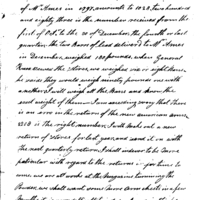 of Mr Ames in 1797, amounts to 1028, two hundred
and eighty three is the number received from the
first of Oct. to the 30 of December, the fourth or last
quarter; the two bears of lead delivered to Mr Ames
in December, weighed 180 pounds, when General
was senior the Stores, we weighed six or eight bars,
he said they would weigh ninety pounds one with
another I will weigh all the bars and know the
exact weight of them — I am sensible say that there
is an error in the return of the new american arms
2213 is the right number, I will make out a new
return of Stores for last year, and send it on with
the next quarterly return, I shall endeavor to be more
particular with regard to the returns in future to
come, we are all at work at the Magazine Cleaning the
Pieces, we shall want some more arm chests in a few